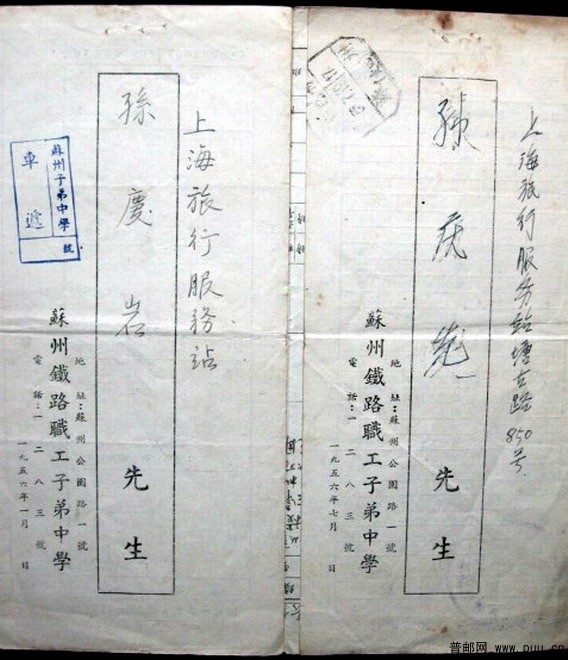 上海旅行服务站塘古路850号
孫庆岩 先生
蘇州鐵路職工子弟中學
地址：蘇州公園路一號
電話：一二八三號
一九五六年七月 日
上海旅行服務站
孫慶岩 先生
蘇州子弟中學
車遞
號
蘇州鐵路職工子弟中學
地址：蘇州公園路一號
電話：一二八三號
一九五六年一月 日
普邮网 www.puu.cn